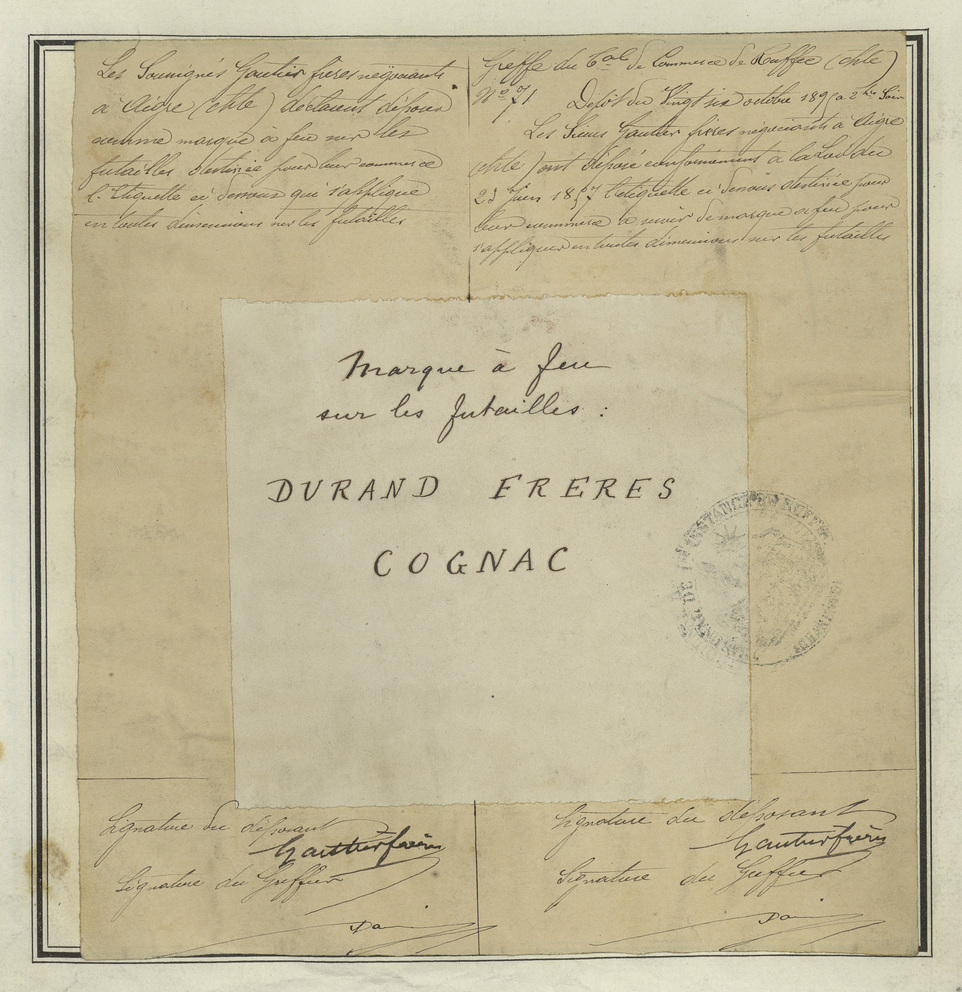 Les Soussignés Gautier frères négociants
à Aigre (chte) déclarent déposer
comme marque à feu sur les
futailles destinée pour leur commerce
l'Etiquette ci dessous qui s'applique
en toutes dimensions sur les futailles
Greffe du Cal de Commerce de Ruffec (chte)
No 71 Dépôt du Vingt six octobre 189 à 2 hrs Soir
Les Sieurs Gautier frères négociants à Aigre
(chte) ont déposé conformément à la Loi du
23 juin 1857 l'étiquette ci dessous destinée pour
leur commerce à servir de marque à feu pour
s'appliquer en toutes dimensions sur les futailles
Marque à feu
sur les futailles :
DURAND FRERES
COGNAC
TRIBUNAL DE 1re INSTANCE DE RUFFEC
Signature du déposant
Gautier frères
Signature du Greffier
Signature du déposant
Gautier frères
Signature du Greffier